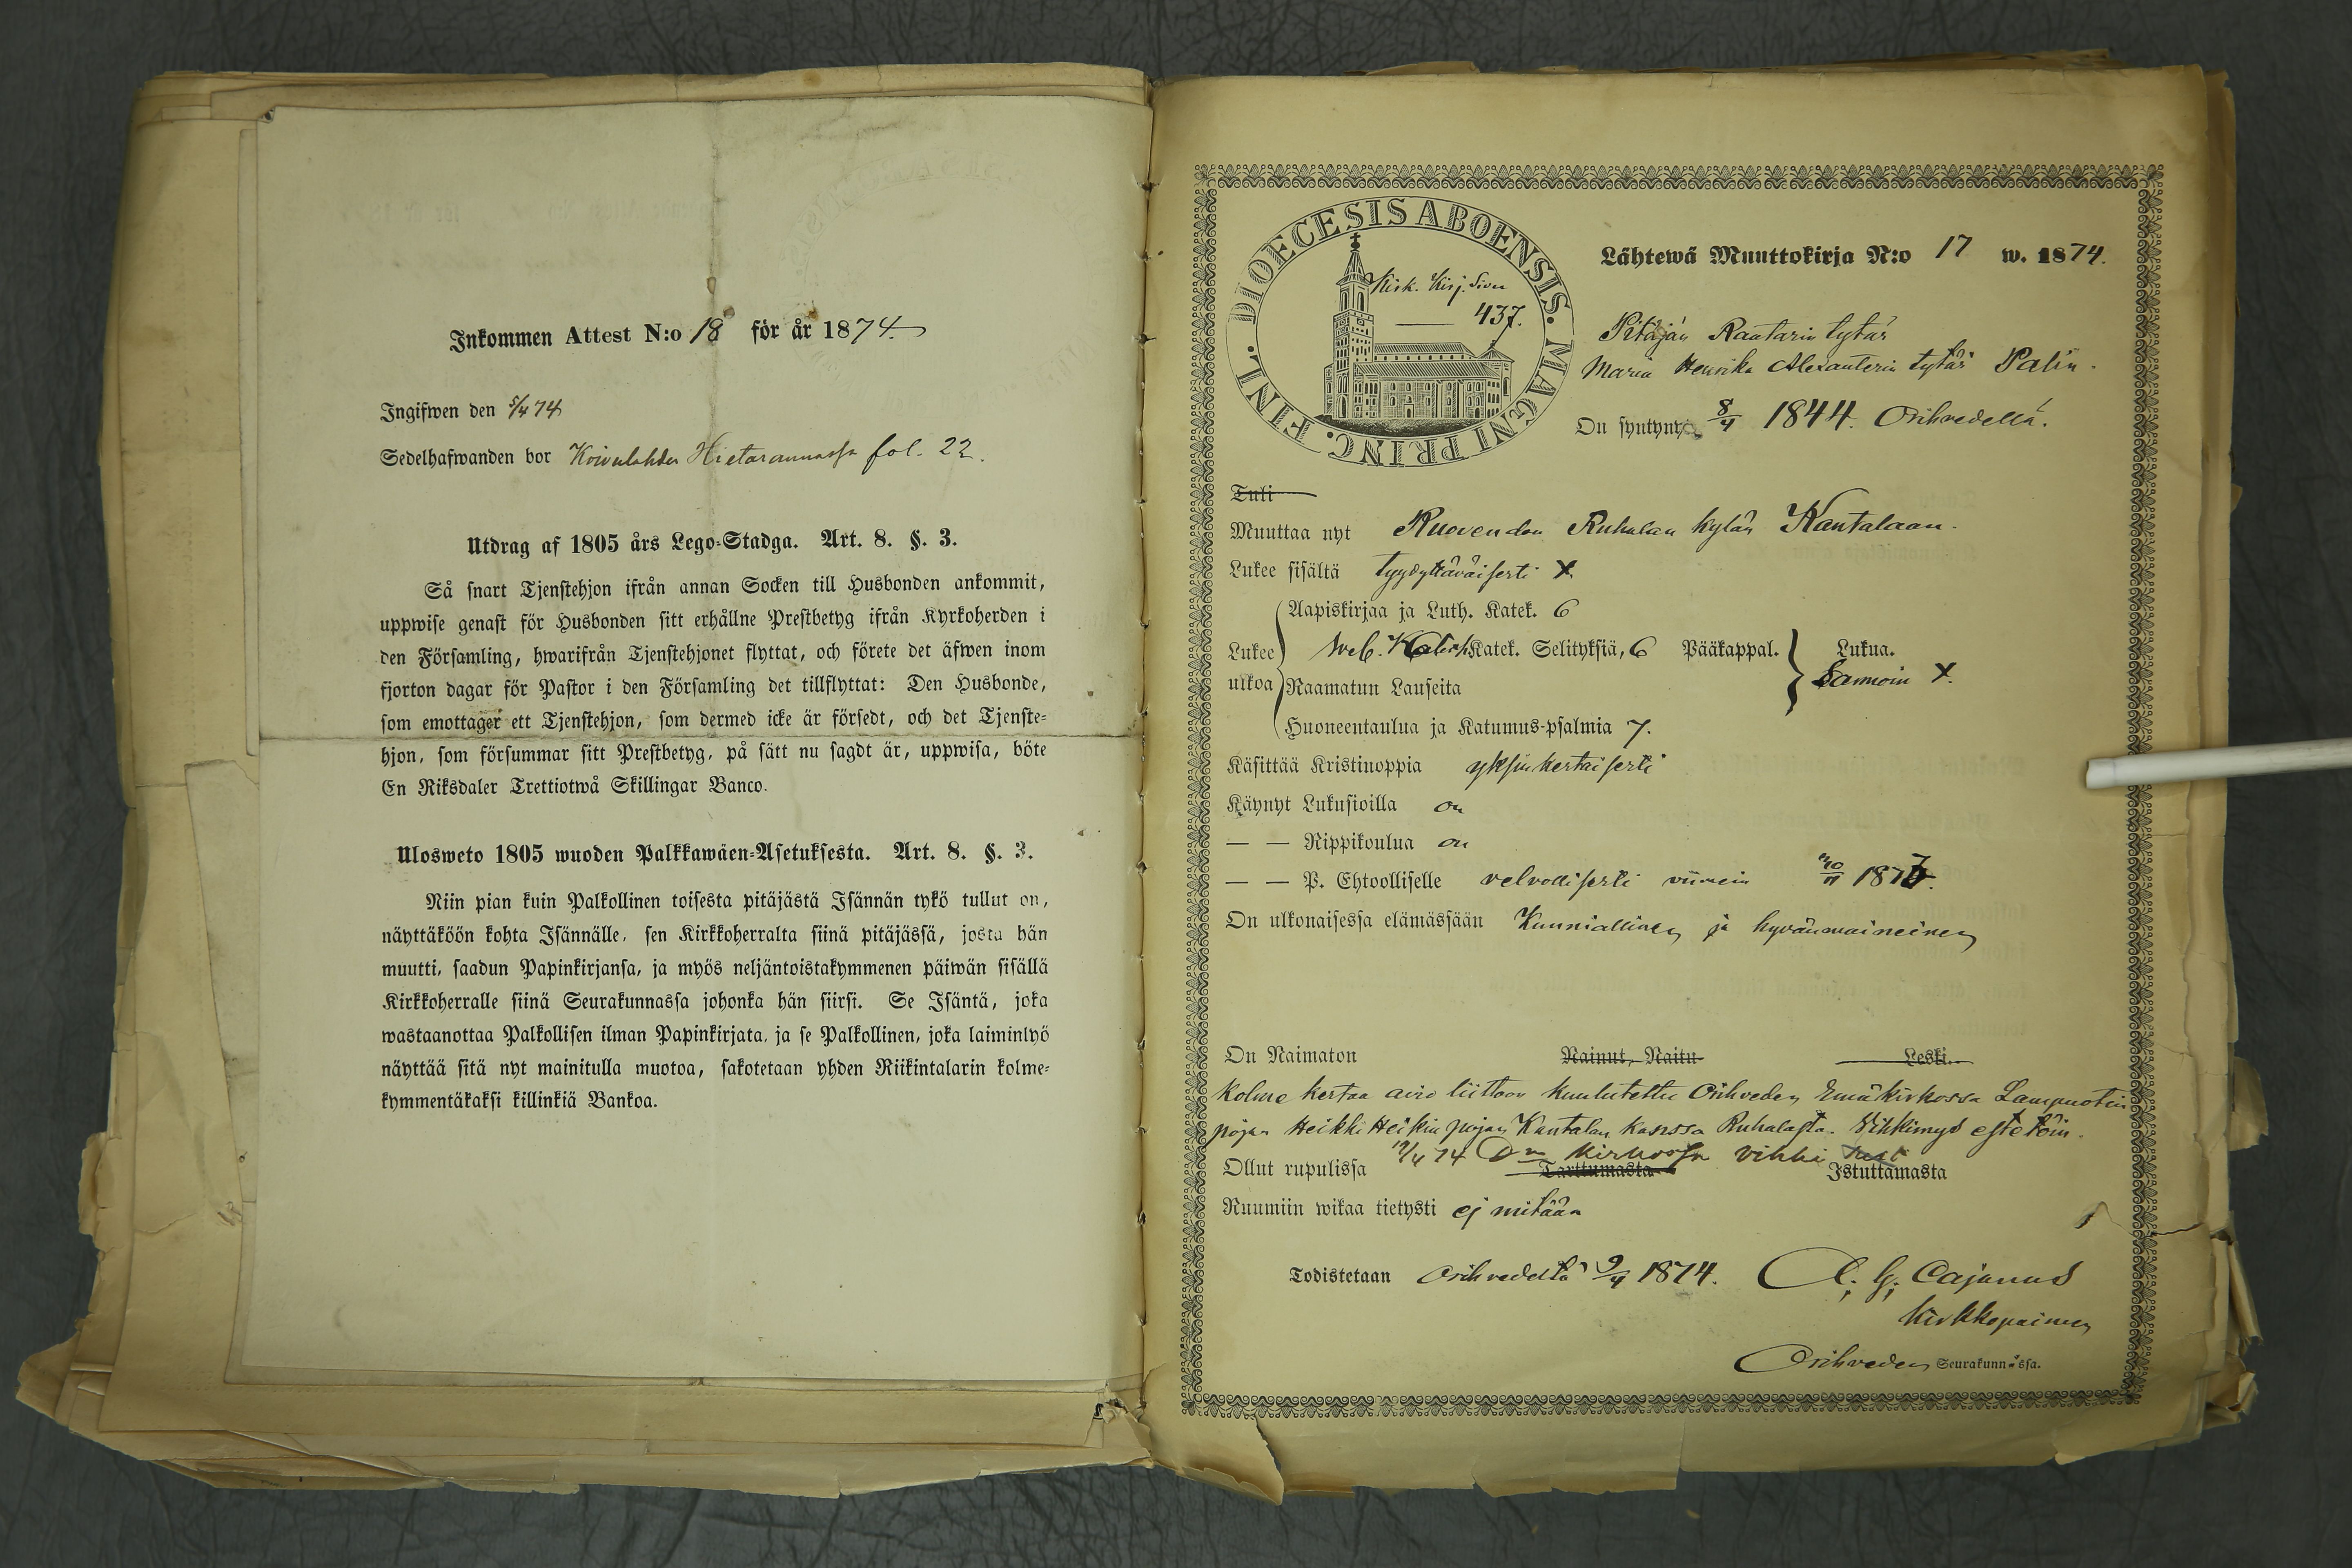 Inkommen Attest N:o 18 för år 1874.
Ingifwen den 5/4 74
Sedelhafwanden bor Koivulahden Hietarannassa fol. 22.
Utdrag af 1805 års Lego-Stadga. Art. 8. §. 3.
Så snart Tjenstehjon ifrån annan Socken till Husbonden ankommit,
uppwise genast för Husbonden sitt erhållne Prestbetyg ifrån Kyrkoherden i
den Församling, hwarifrån Tjenstehjonet flyttat, och förete det äfwen inom
fjorton dagar för Pastor i den Församling det tillflyttat: Den Husbonde,
som emottager ett Tjenstehjon, som dermed icke är försedt, och det Tjenste-
hjon, som försummar sitt Prestbetyg, på sätt nu sagdt är, uppwisa, böte
En Riksdaler Trettiotwå Skillingar Banco.
Ulosweto 1805 wuoden Palkkawäen-Asetuksesta. Art. 8. §. 3.
Niin pian kuin Palkollinen toisesta pitäjästä Isännän tykö tullut on,
näyttäköön kohta Isännälle, sen Kirkkoherralta siinä pitäjässä, josta hän
muutti, saadun Papinkirjansa, ja myös neljäntoistakymmenen päiwän sisällä
Kirkkoherralle siinä Seurakunnassa johonka hän siirsi. Se Isäntä, joka
wastaanottaa Palkollisen ilman Papinkirjata, ja se Palkollinen, joka laiminlyö
näyttää sitä nyt mainitulla muotoa, sakotetaan yhden Riikintalarin kolme-
kymmentäkaksi killinkiä Bankoa.
DIOECESIS ABOENSIS. MAGNI PRINC. FINL.
Kirk. Kirj. Sivu
437.
Lähtewä Muuttokirja N:o 17 w. 1874.
Pitäjän Räätärin tytär
Maria Henrika Alexanterin tytär Palin.
On syntynyt 8/4 1844. Orihvedellä.
Tuli
Muuttaa nyt Ruoveden Ruhalan kylän Kantalaan.
Lukee sisältä tyydyttäväisesti X
Aapiskirjaa ja Luth. Katek. 6
Lukee ulkoa Katek. Selityksiä, 6 Pääkappal. Lukua.
Samoin X.
Raamatun Lauseita
Huoneentaulua ja Katumus-psalmia 7.
Käsittää Kristinoppia yksinkertaisesti
Käynyt Lukusioilla on
— — Rippikoulua on
— — P. Ehtoolliselle velvollisesti viimein 30/11 1873.
On ulkonaisessa elämässään Kunniallinen ja hyvänmaineinen
On Naimaton Nainut, Naitu Leski.
Kolme kertaa avio liittoon kuulutettu Orihveden Emäkirkossa Lampuotin
pojan Heikki Heikin pojan Kantalan kanssa Ruhalasta. Vihkimys esteetöin.
12/4 74 kirkossa vihki
Ollut rupulissa Tarttumasta Istuttamasta
Ruumiin wikaa tietysti ej mitään
Todistetaan Orihvedeltä 9/4 1874. A. G. Cajanus
Kirkkopaimen
Orihveden Seurakunnassa.